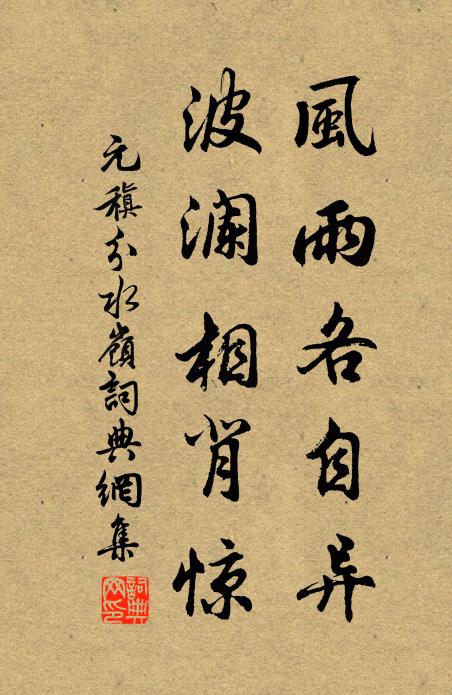 風雨各自异
波澜相背惊
元稹分水嶺詞典網集
詞典
网印